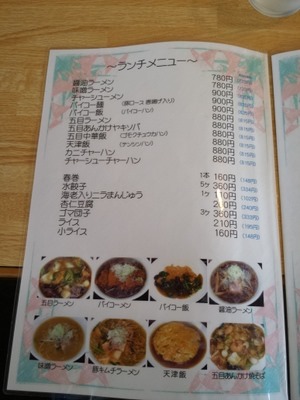 ～ランチメニュー～
醤油ラーメン 780円
味噌ラーメン 780円
チャーシューメン 900円
パイコー麺 (豚ロース 唐揚げ入り) 900円
パイコー飯 900円
五目ラーメン 880円
五目あんかけヤキソバ 880円
五目中華飯 (ゴモクチュウカハン) 880円
天津飯 (テンシンハン) 880円
カニチャーハン 880円
チャーシューチャーハン 880円
春巻 1本 160円
水餃子 5ヶ 360円
海老入りニラまんじゅう 1ヶ
杏仁豆腐
ゴマ団子 3ヶ 360円
ライス 210円
小ライス 160円
五目ラーメン パイコーメン パイコー飯 醤油ラーメン
味噌ラーメン 豚キムチラーメン 天津飯 五目あんかけ焼そば